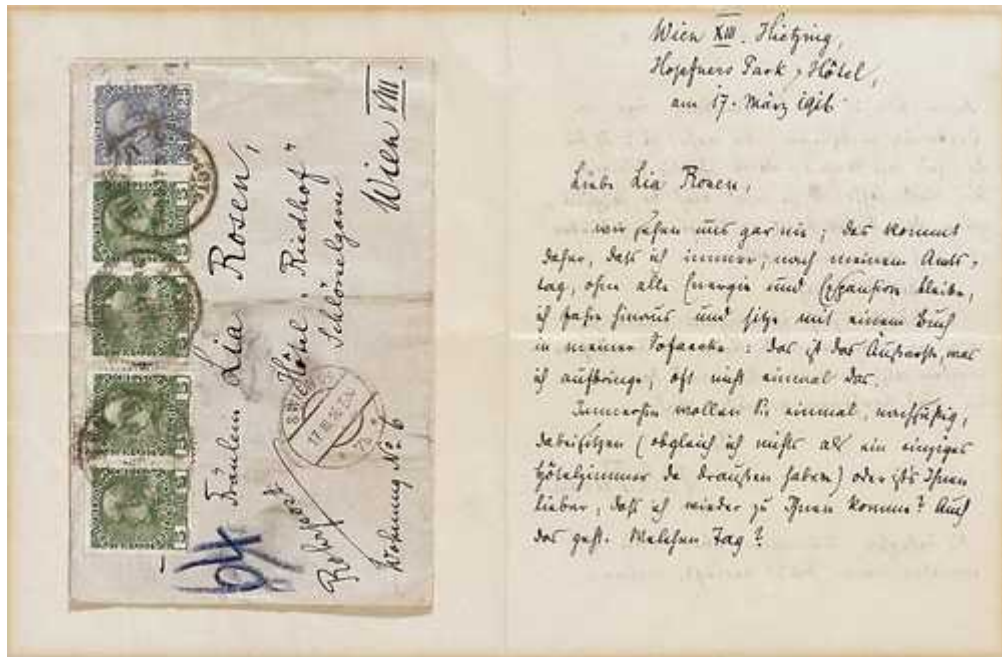 Fräulein Lia Rosen,
Hôtel "Riedhof"
Schlösselgasse
Wien VIII.
Rohrpost
Wohnung No. 6
17.III.16
5
5
5
5
25
Wien XIII. Hietzing,
Hopfners Park-Hôtel,
am 17. März 1916.
Liebe Lia Rosen,
wir sehen uns gar nie; das kommt
daher, dass ich immer, nach meinem Amts-
tag, ohne alle Energie und Expansion bleibe,
ich fahre hinaus und sitze mit einem Buch
in meiner Sofaecke: das ist das Äußerste, was
ich aufbringe, oft nicht einmal das.
Immerhin wollen Sie einmal, nachsichtig,
dabeisitzen (obgleich ich nichts als ein einziges
Hôtelzimmer da draußen habe) oder ists Ihnen
lieber, dass ich wieder zu Ihnen komme? Auch
das geht. Welchen Tag?